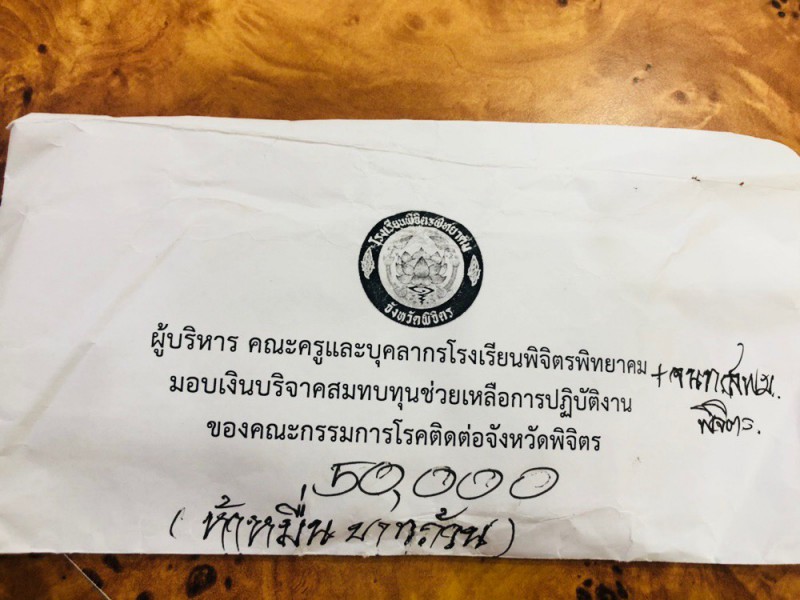 โรงเรียนพิจิตรพิทยาคม
จังหวัดพิจิตร
ผู้บริหาร คณะครูและบุคลากรโรงเรียนพิจิตรพิทยาคม
มอบเงินบริจาคสมทบทุนช่วยเหลือการปฏิบัติงาน
ของคณะกรรมการโรคติดต่อจังหวัดพิจิตร
พิจิตร.
50,000
(ห้าหมื่นบาทถ้วน)